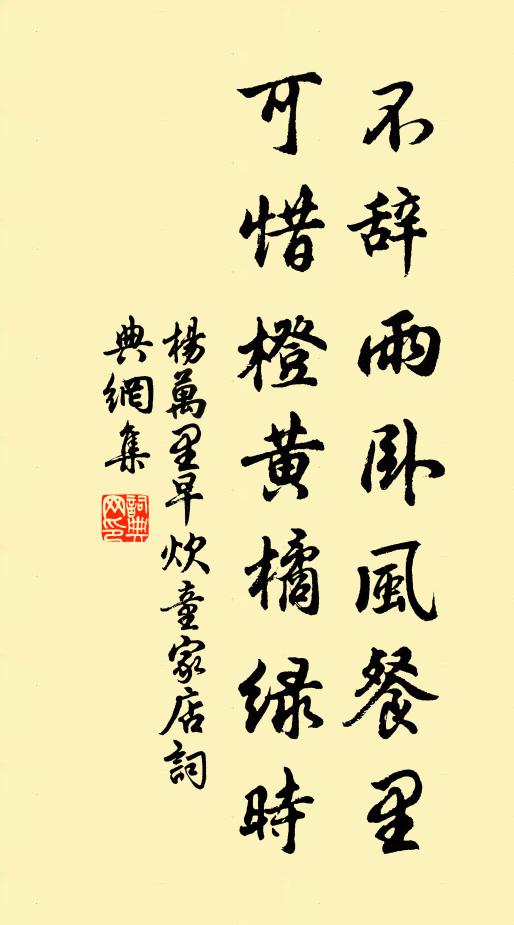 不辞雨卧風餐里
可惜橙黄橘緑時
楊萬里早炊童家店詞
典網集
詞典網印